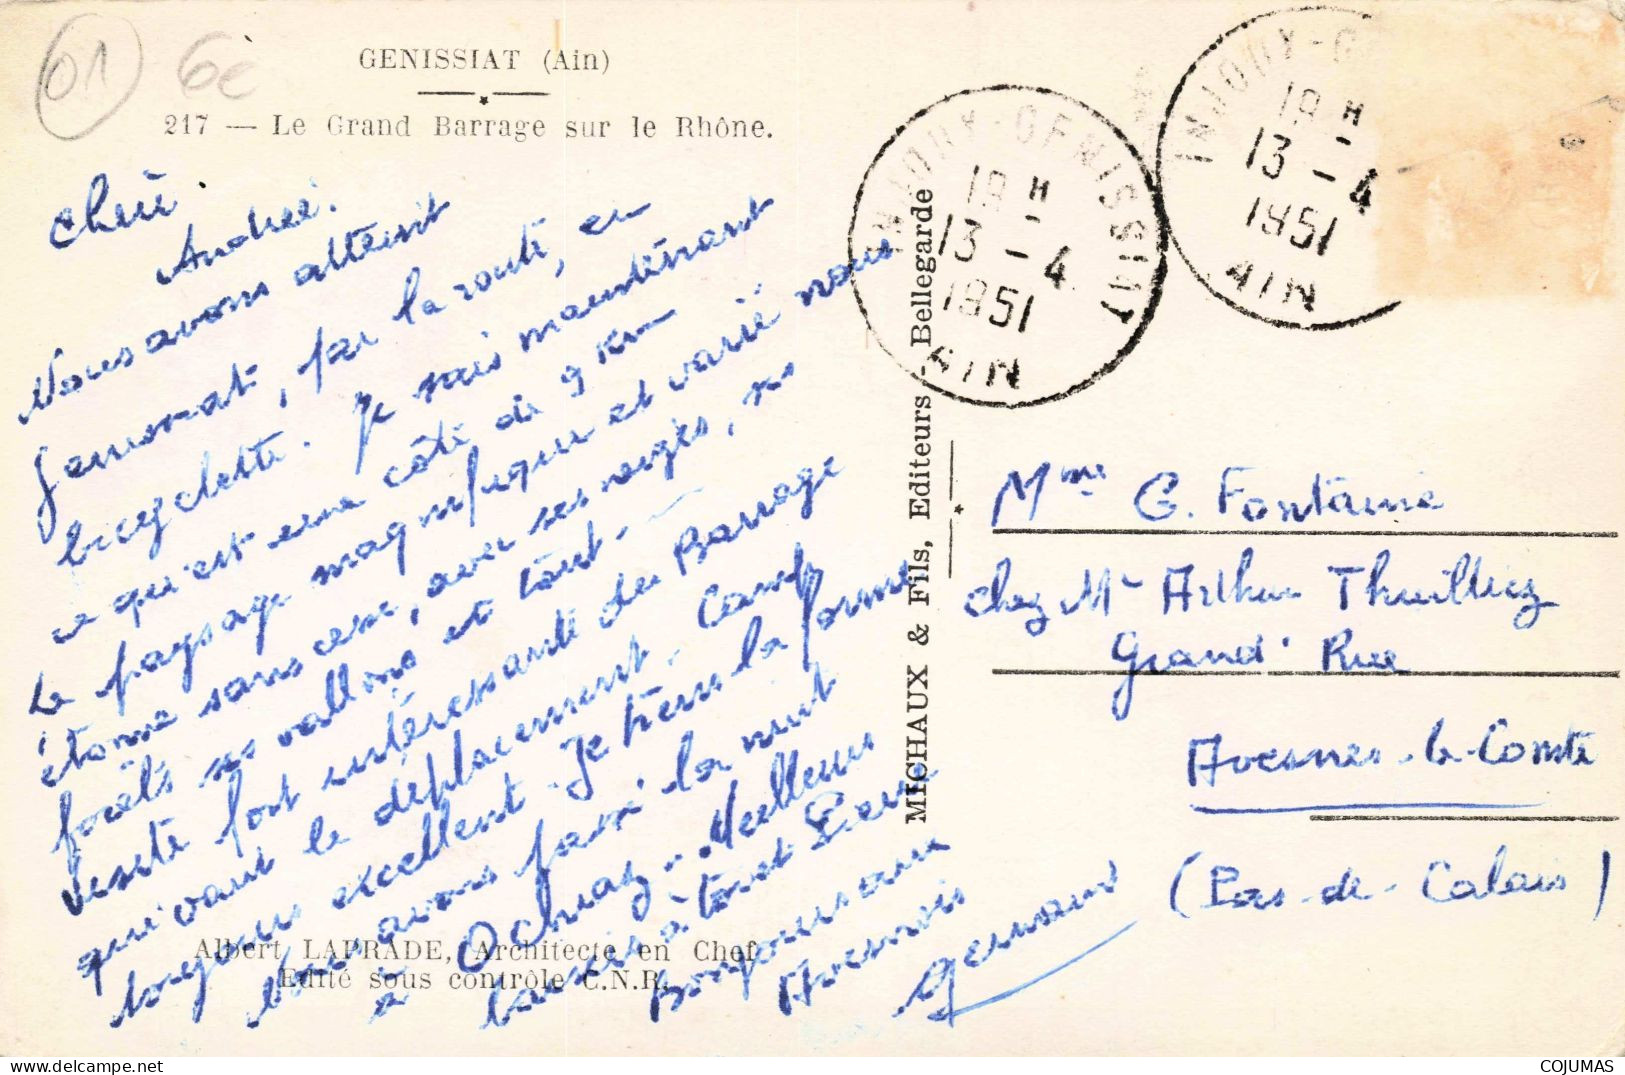 01 6è
GENISSIAT (Ain)
217 — Le Grand Barrage sur le Rhône.
Andrée.
Nous avons atteint
, par la route, en
bicyclette. Je sais maintenant
ce qu'est une côte de 9 km
Le paysage magnifique et varié nous
étonne sans cesse, avec ses neiges, ses
forêts ses vallons et tout. —
Visite fort intéressante du Barrage
qui vaut le déplacement. Camp
toujours excellent. Je tiens la forme
Nous avons passé la nuit
à . Meilleurs
baisers à tous et
Bonjour aux
Avesnois
Germain
Albert LAPRADE, Architecte en Chef
Edité sous contrôle C.N.R.
MICHAUX & Fils, Editeurs - Bellegarde
INJOUX-GENISSIAT
18 H
13 - 4
1951
AIN
INJOUX-G
18 H
13 - 4
1951
AIN
Mme G. Fontaine
chez Mr Arthur Thuilliez
Grand' Rue
Avesnes-le-Comte
(Pas-de-Calais)
COJUMAS